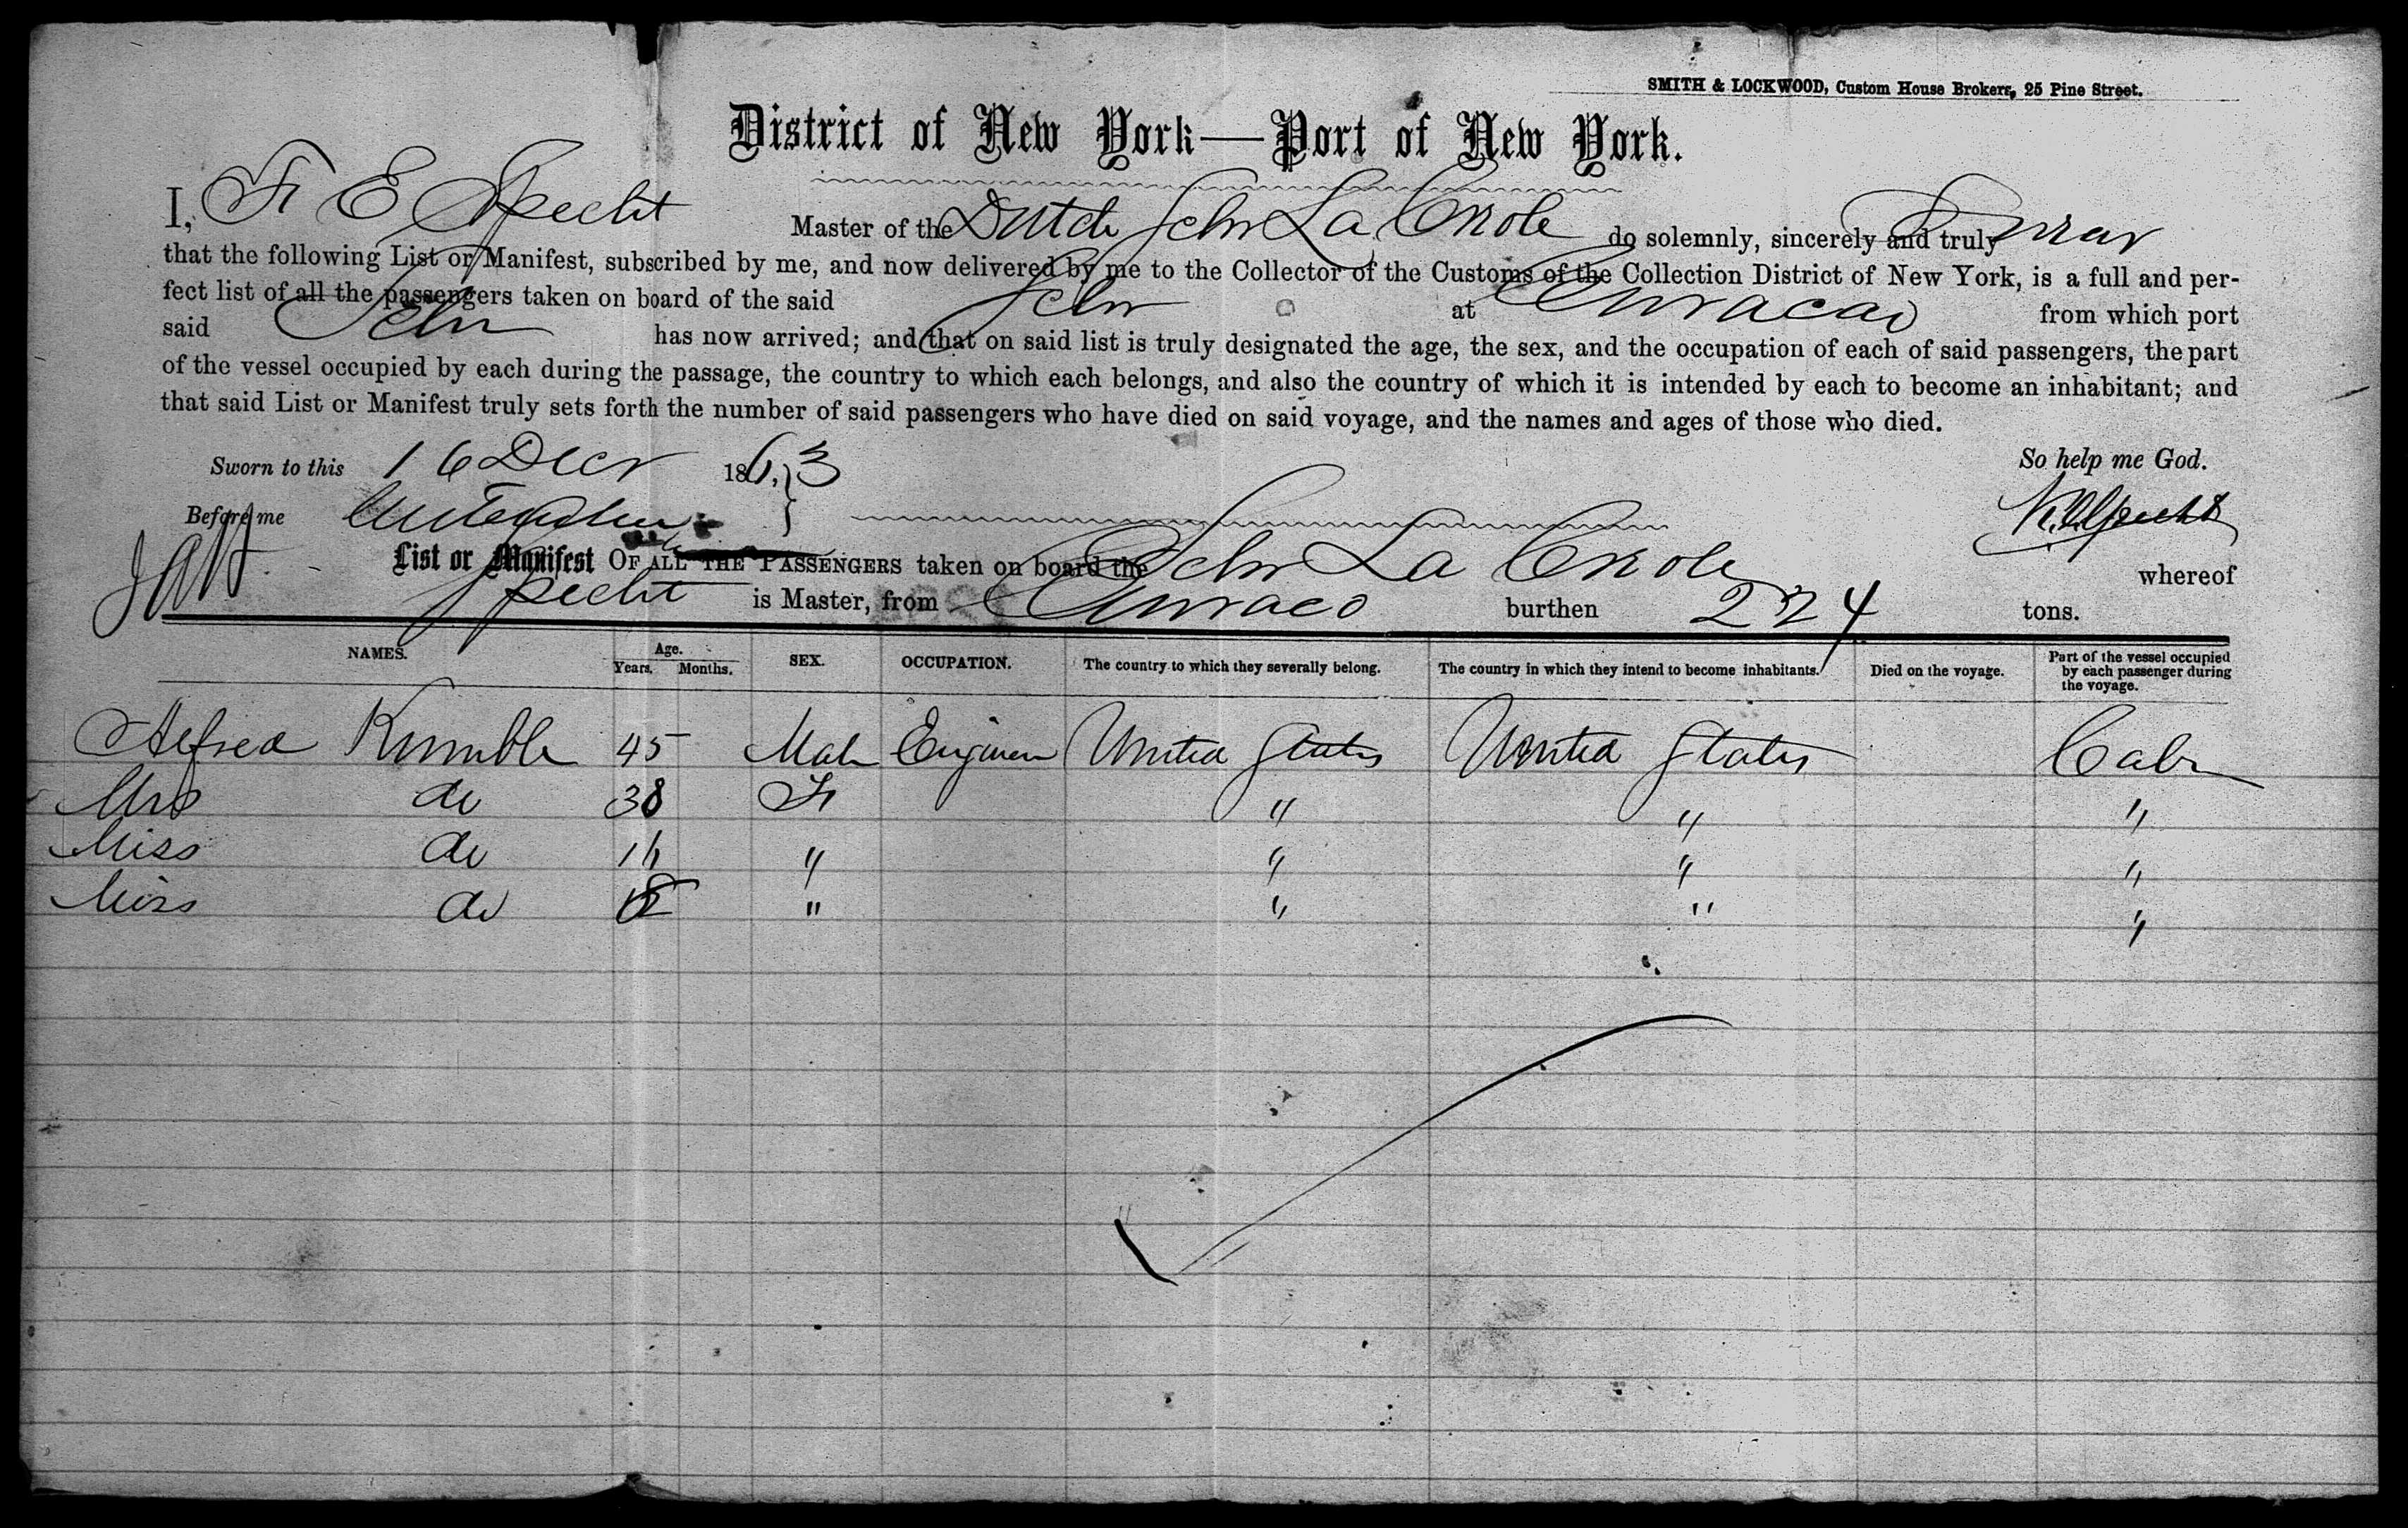 SMITH & LOCKWOOD, Custom House Brokers, 25 Pine Street.
District of New York—Port of New York.
I, F E Specht Master of the Dutch Schr La Creole do solemnly, sincerely and truly Swear
that the following List or Manifest, subscribed by me, and now delivered by me to the Collector of the Customs of the Collection District of New York, is a full and per-
fect list of all the passengers taken on board of the said Schr at Curacao from which port
said Schr has now arrived; and that on said list is truly designated the age, the sex, and the occupation of each of said passengers, the part
of the vessel occupied by each during the passage, the country to which each belongs, and also the country of which it is intended by each to become an inhabitant; and
that said List or Manifest truly sets forth the number of said passengers who have died on said voyage, and the names and ages of those who died.
Sworn to this 16 Decr 1863 So help me God.
Before me
List or Manifest OF ALL THE PASSENGERS taken on board the Schr La Creole whereof
Specht is Master, from Curaco burthen 224 tons.
NAMES. Age. Years. Months. SEX. OCCUPATION. The country to which they severally belong. The country in which they intend to become inhabitants. Died on the voyage. Part of the vessel occupied by each passenger during the voyage.
Alfred Rumble 45 Male Engineer United States United States Cabin
Mrs do 38 F " " "
Miss do " " " "
Miss do " " " "